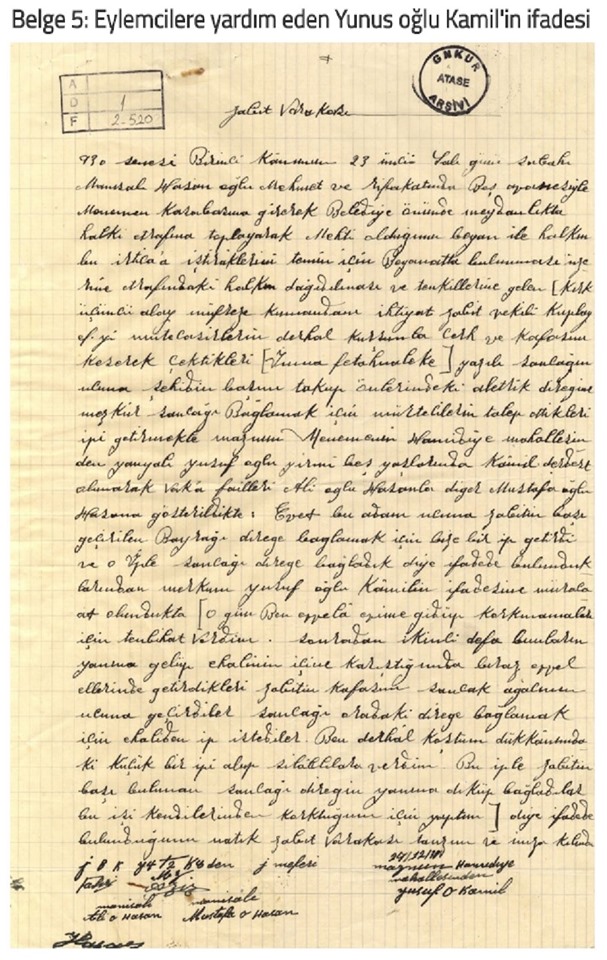 Belge 5: Eylemcilere yardım eden Yunus oğlu Kamil'in ifadesi
A
D 1
F 2-520
GNKUR
ATASE
ARŞİVİ
Zabıt Varakası
930 senesi Birinci Kânunun 23 üncü Salı günü sabahı
Manisalı Hasan oğlu Mehmet ve rüfakatında Beş avanesiyle
Menemen Kasabasına girerek Belediye önünde meydanlıkta
halkı etrafına toplayarak Mehti olduğunu beyan ile halkın
bu irticaa iştiraklerini temin için Beyanatta bulunması üze
rine etrafındaki halkın dağıdılması ve tenkillerine gelen [Kırk
üçüncü alay müfreze kumandanı ihtiyat zabit vekili Kuplay
ef. yi mütecasirlerin derhal kurşunla cerh ve kafasını
keserek çektikleri [İnna fetahnaleke] yazılı sancağın
ucuna şehidin başını takup önlerindeki elektrik direğine
mezkür sancağı Bağlamak için mürtecilerin talep ettikleri
ipi getirmekle maznun Menemenin Hamidiye mahallesin
den yanyalı yusuf oğlu yirmi beş yaşlarında Kâmil derdest
olunarak Vak'a failleri Ali oğlu Hasanla diğer Mustafa oğlu
Hasana gösterildikte: Evet bu adam ucuna zabitin başı
geçirilen Bayrağı direge baglamak için bize bir ip getirdi
ve o İple sancağı direge bağladık diye ifadede bulunduk
larından merkum yusuf oğlu Kâmilin ifadesine müraca
at olundukta [O gün Ben evvelâ evime gidip korkmamaları
için tenbihat verdim. sonradan ikinci defa bunların
yanına gelip ehalinin içine karıştığımda biraz evvel
ellerinde getirdikleri zabitin kafasını sancak ağacının
ucuna geçirdiler sancağı oradaki direge bağlamak
için ehaliden ip istediler. Ben derhal koştum dükkânımda
ki küçük bir ipi alup silâhlılara verdim. Bu iple zabitin
başı bulunan sancağı direğin yanına diküp bağladılar
bu işi kendilerinden korktuğum için yaptım] diye ifadede
bulunduğunu natık zabıt Varakası tanzim ve imza kılındı
manisalı
Ali O Hasan
manisalı
Mustafa O Hasan
maznun Hamidiye
mahallesinden
yusuf O Kamil
Hasan